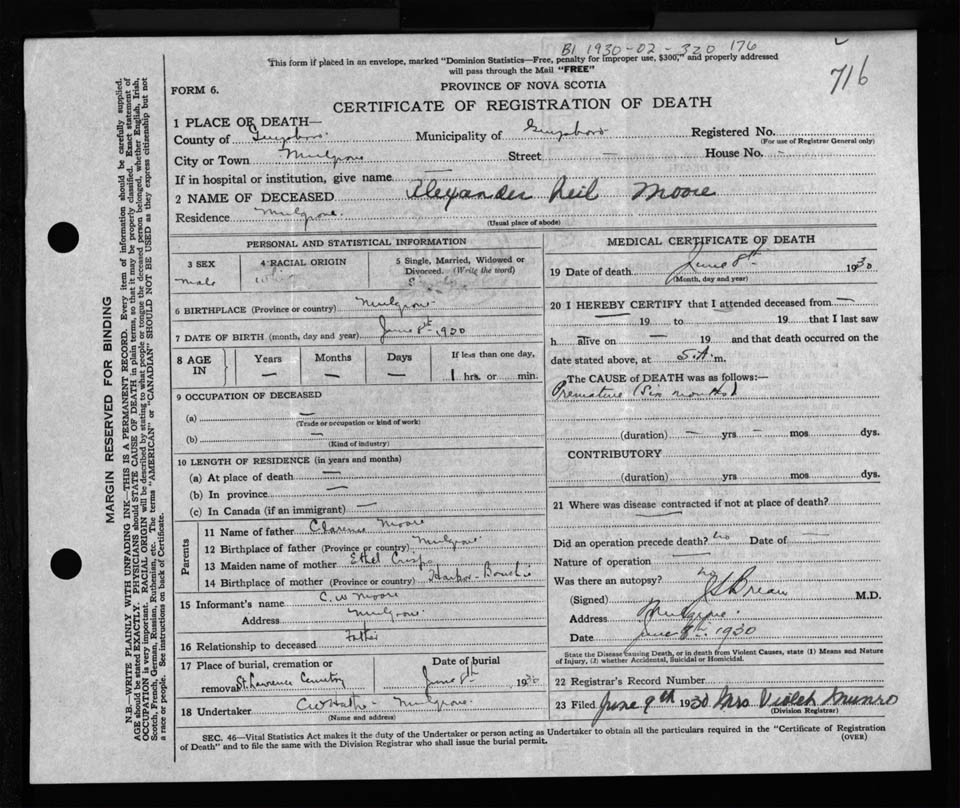 BI 1930-02-320 176
716
This form if placed in an envelope, marked "Dominion Statistics—Free, penalty for improper use, $300," and properly addressed
will pass through the Mail "FREE"
FORM 6.
PROVINCE OF NOVA SCOTIA
CERTIFICATE OF REGISTRATION OF DEATH
1 PLACE OF DEATH—
County of Guysboro Municipality of Guysboro Registered No.
(For use of Registrar General only)
City or Town Mulgrave Street — House No. -
If in hospital or institution, give name —
2 NAME OF DECEASED Alexander Neil Moore
Residence Mulgrave.
(Usual place of abode)
PERSONAL AND STATISTICAL INFORMATION
3 SEX 4 RACIAL ORIGIN 5 Single, Married, Widowed or
Divorced. (Write the word)
male white Single
6 BIRTHPLACE (Province or country) Mulgrave
7 DATE OF BIRTH (month, day and year) June 8th 1930
8 AGE IN Years Months Days If less than one day,
— — — 1 hrs. or min.
9 OCCUPATION OF DECEASED
(a) —
(Trade or occupation or kind of work)
(b) —
(Kind of industry)
10 LENGTH OF RESIDENCE (in years and months)
(a) At place of death —
(b) In province —
(c) In Canada (if an immigrant) —
Parents
11 Name of father Clarence Moore
12 Birthplace of father (Province or country) Mulgrave
13 Maiden name of mother Ethel
14 Birthplace of mother (Province or country) Harbor-Bouchie
15 Informant's name C. W Moore
Address Mulgrave.
16 Relationship to deceased Father
17 Place of burial, cremation or Date of burial
removal St. Lawrence Cemetry June 8th 1930
18 Undertaker Mulgrave.
(Name and address)
MEDICAL CERTIFICATE OF DEATH
19 Date of death June 8th 1930
(Month, day and year)
20 I HEREBY CERTIFY that I attended deceased from —
— 19 to 19 that I last saw
h alive on — 19 and that death occurred on the
date stated above, at 5.A. m.
The CAUSE of DEATH was as follows:—
Premature (Six months)
(duration) — yrs — mos dys.
CONTRIBUTORY
(duration) yrs mos dys.
21 Where was disease contracted if not at place of death?
—
Did an operation precede death? No Date of —
Nature of operation —
Was there an autopsy? No
(Signed) M.D.
Address Mulgrave.
Date June 8th 1930
State the Disease causing Death, or in death from Violent Causes, state (1) Means and Nature
of Injury, (2) whether Accidental, Suicidal or Homicidal.
22 Registrar's Record Number
23 Filed June 9th 1930 Mrs Violet Munro
(Division Registrar)
SEC. 46—Vital Statistics Act makes it the duty of the Undertaker or person acting as Undertaker to obtain all the particulars required in the "Certificate of Registration
of Death" and to file the same with the Division Registrar who shall issue the burial permit. (OVER)
MARGIN RESERVED FOR BINDING
N.B.—WRITE PLAINLY WITH UNFADING INK—THIS IS A PERMANENT RECORD. Every item of information should be carefully supplied.
AGE should be stated EXACTLY. PHYSICIANS should STATE CAUSE OF DEATH in plain terms, so that it may be properly classified. Exact statement of
OCCUPATION is very important. RACIAL ORIGIN will be described by stating to what people or tongue the deceased person belonged, whether English, Irish,
Scotch, French, German, Russian, Ruthenian, etc. The terms "AMERICAN" or "CANADIAN" SHOULD NOT BE USED as they express citizenship but not
a race or people. See instructions on back of Certificate.